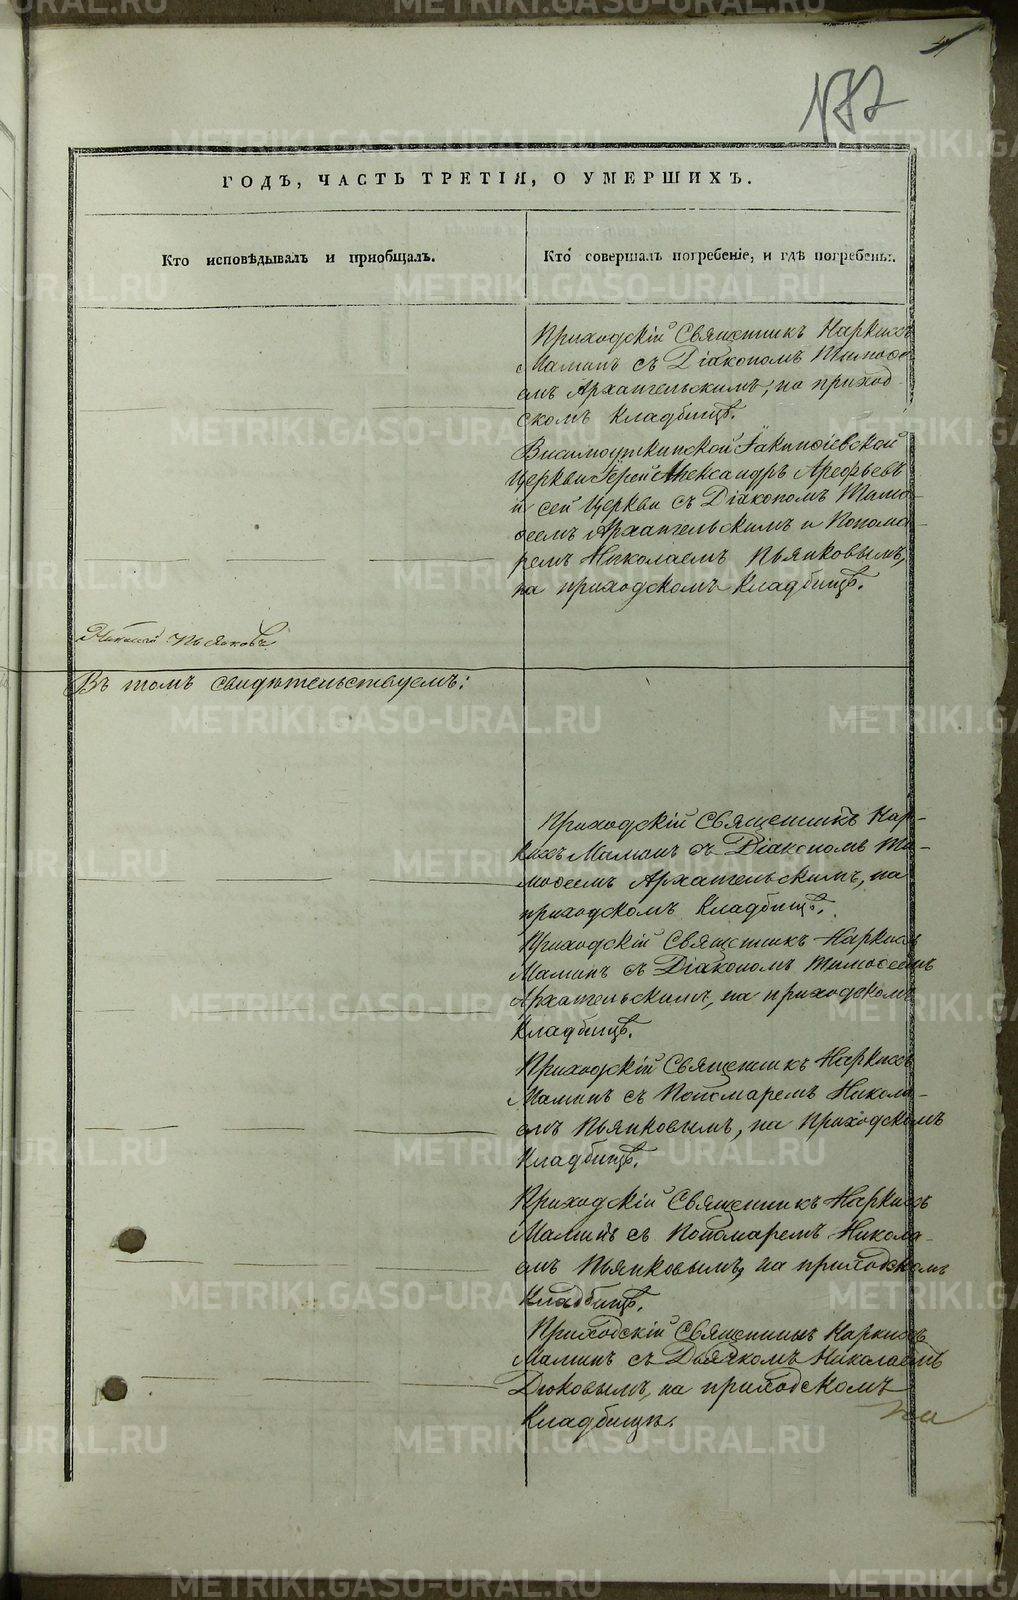 132
ГОДЪ, ЧАСТЬ ТРЕТІЯ, О УМЕРШИХЪ.
Кто исповѣдывалъ и пріобщалъ.
Кто совершалъ погребеніе, и гдѣ погребены.
Приходскій Священникъ Наркисъ
Маминъ съ Діакономъ Тимоѳе-
емъ Архангельскимъ, на приход-
скомъ Кладбищѣ.
Висимоуткинской Іакинѳіевской
Церкви Іерей Александръ Арефьевъ
и сей Церкви съ Діакономъ Тимо-
ѳеемъ Архангельскимъ и Понома-
ремъ Николаемъ Пьянковымъ,
на приходскомъ Кладбищѣ.
Николай Пьянковъ
Въ томъ свидѣтельствуемъ:
Приходскій Священникъ Нар-
кисъ Маминъ съ Діакономъ Ти-
моѳеемъ Архангельскимъ, на
приходскомъ Кладбищѣ.
Приходскій Священникъ Наркисъ
Маминъ съ Діакономъ Тимоѳеемъ
Архангельскимъ, на приходскомъ
Кладбищѣ.
Приходскій Священникъ Наркисъ
Маминъ съ Пономаремъ Никола-
емъ Пьянковымъ, на приходскомъ
Кладбищѣ.
Приходскій Священникъ Наркисъ
Маминъ съ Пономаремъ Никола-
емъ Пьянковымъ, на приходскомъ
Кладбищѣ.
Приходскій Священникъ Наркисъ
Маминъ съ Дьячкомъ Николаемъ
Дюковымъ, на приходскомъ
Кладбищѣ.
на
METRIKI.GASO-URAL.RU